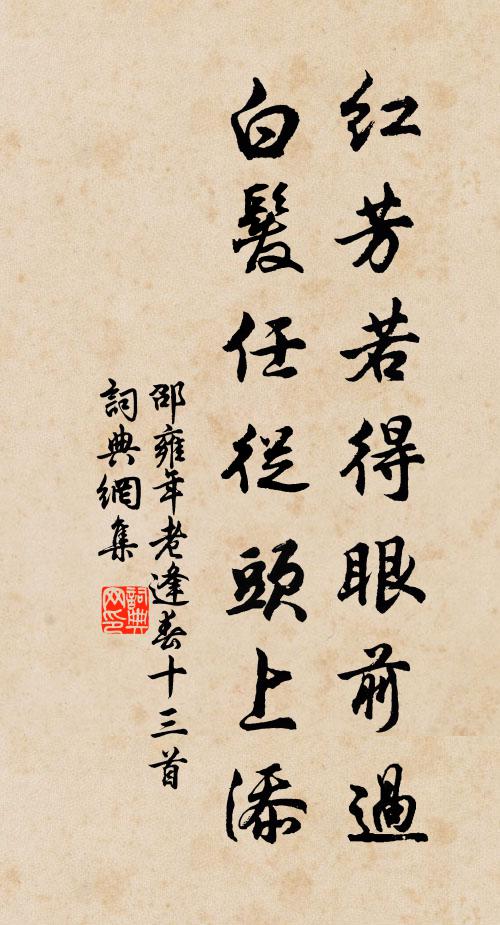 紅芳若得眼前過
白髮任從頭上添
邵雍年老逢春十三首
詞典網集
詞典网印